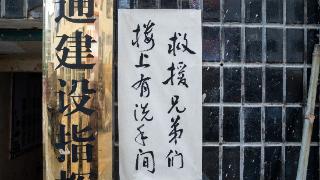 救援兄弟们
楼上有洗手间
通建设指挥